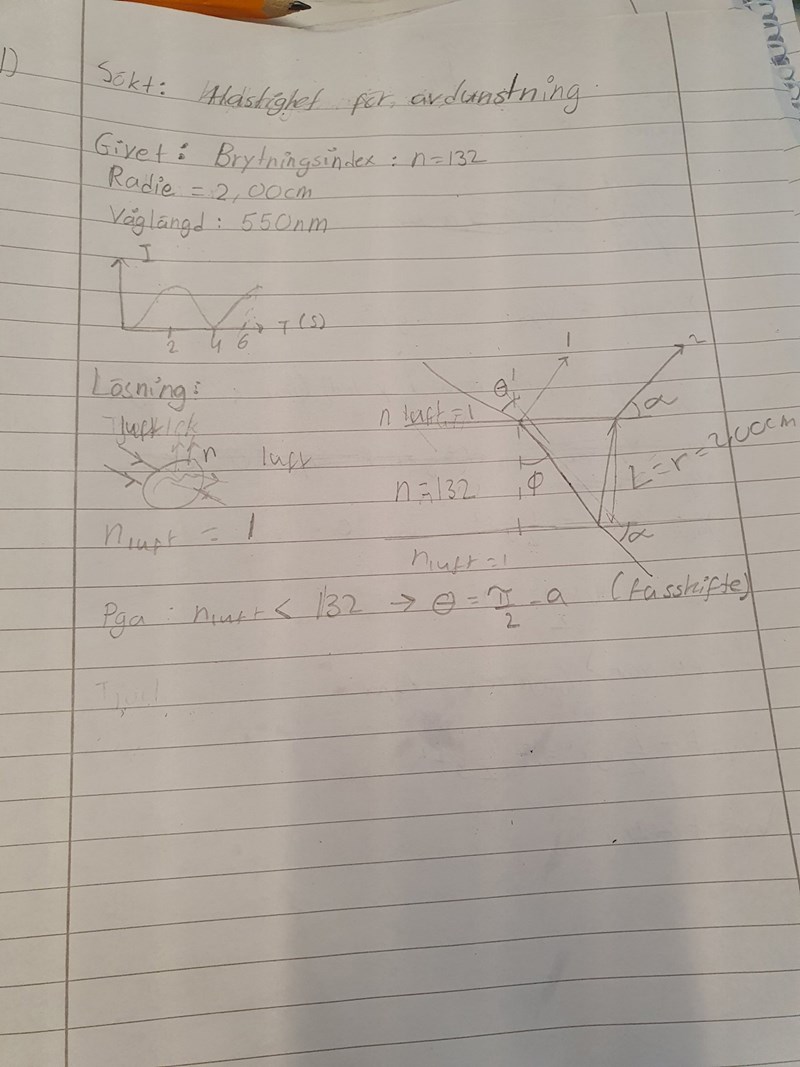 1)
Sökt: Hastighet för avdunstning.
Givet: Brytningsindex: n=132
Radie = 2,00cm
Våglängd: 550nm
I
2 4 6 T(s)
Lösning:
1 2
θ' α
n luft = 1
n luft
n=132 φ L=r=2,00cm
n luft = 1 α
n luft = 1
Pga: n luft < 132 → θ = π/2 - a (fasskifte)